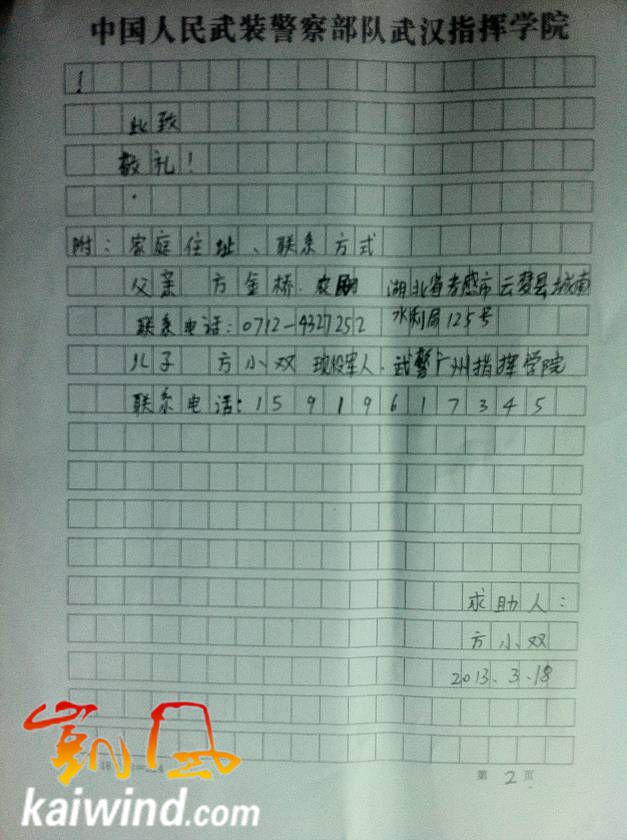 中国人民武装警察部队武汉指挥学院
！
此致
敬礼！
附：家庭住址、联系方式
父亲 方金桥. 湖北省孝感市云梦县城南
水利局125号
联系电话：0712-4327252
儿子 方小双 现役军人. 武警广州指挥学院
联系电话：15919617345
求助人：
方小双
2013.3.18
第 2 页
凯风
kaiwind.com